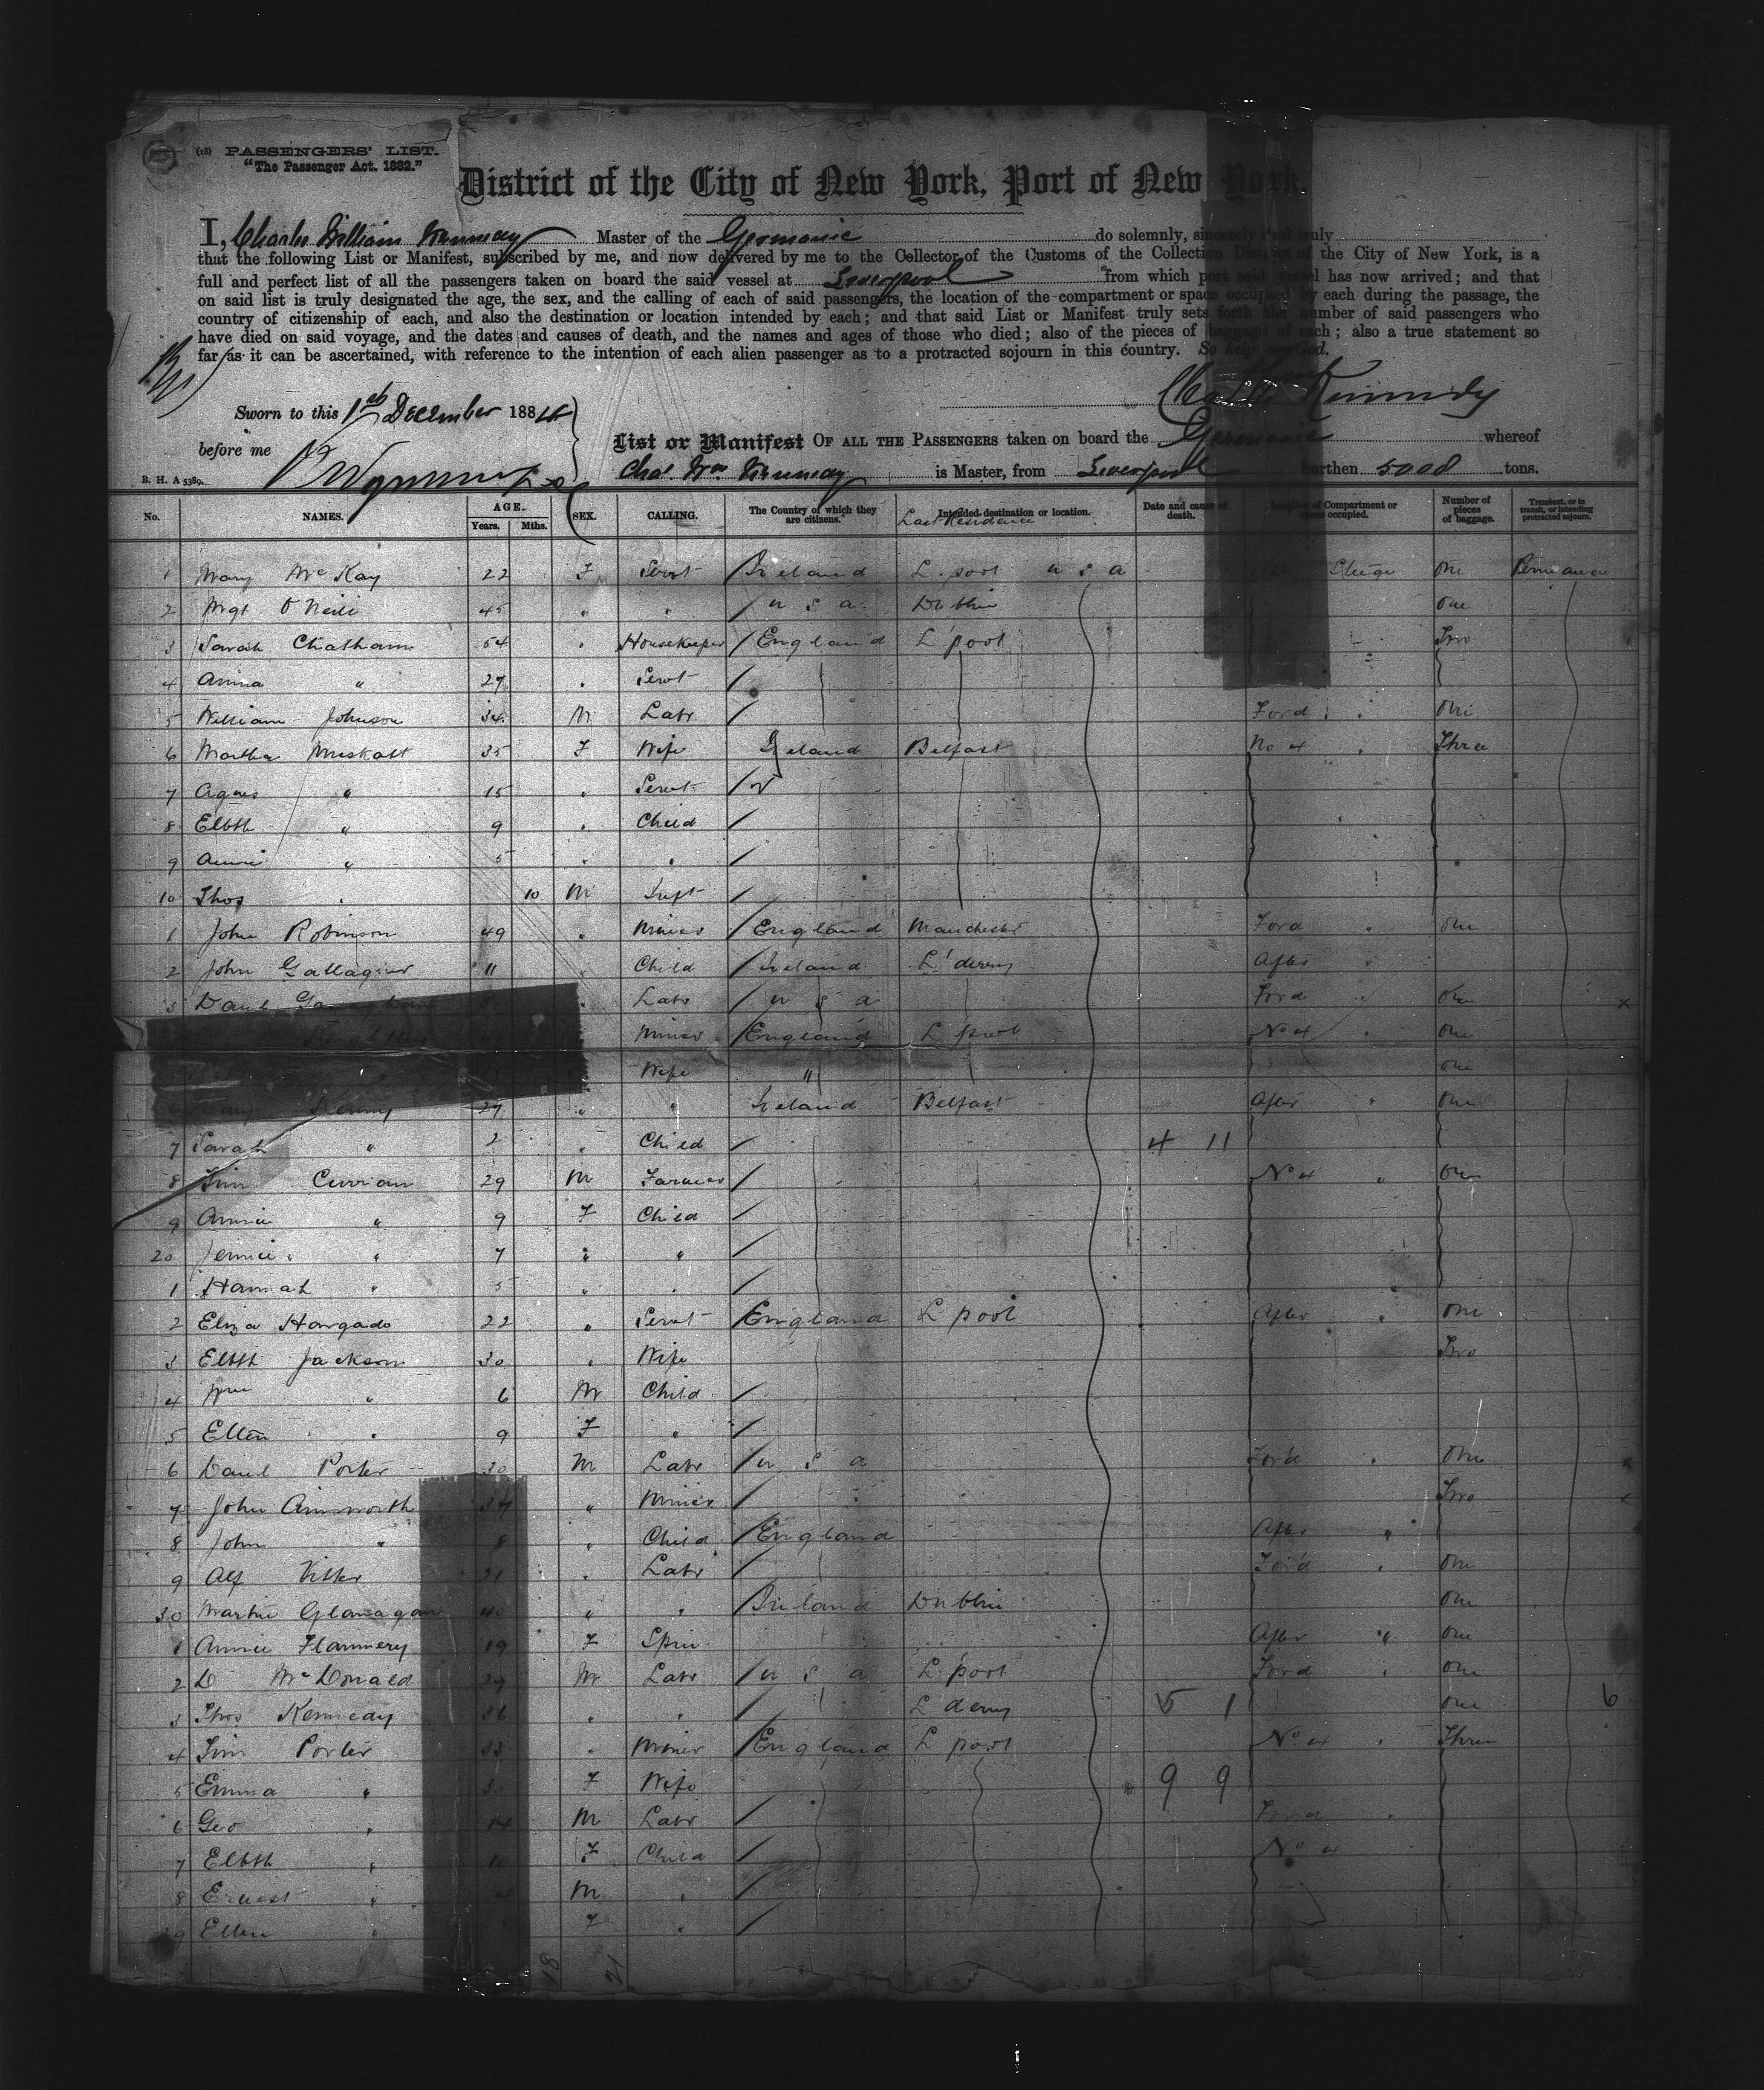 (18) PASSENGERS' LIST.
"The Passenger Act. 1882."
District of the City of New York, Port of New York.
I, Charles William Kennedy Master of the Germanic do solemnly, sincerely and truly
that the following List or Manifest, subscribed by me, and now delivered by me to the Collector of the Customs of the Collection District of the City of New York, is a
full and perfect list of all the passengers taken on board the said vessel at Liverpool from which port said vessel has now arrived; and that
on said list is truly designated the age, the sex, and the calling of each of said passengers, the location of the compartment or space occupied by each during the passage, the
country of citizenship of each, and also the destination or location intended by each; and that said List or Manifest truly sets forth the number of said passengers who
have died on said voyage, and the dates and causes of death, and the names and ages of those who died; also of the pieces of baggage of each; also a true statement so
far as it can be ascertained, with reference to the intention of each alien passenger as to a protracted sojourn in this country. So help me God.
Sworn to this 1st December 188
before me
Kennedy
List or Manifest OF ALL THE PASSENGERS taken on board the Germanic whereof
Chas Wm Kennedy is Master, from Liverpool burthen 5008 tons.
B. H. A 5389.
No. NAMES. AGE. Years. Mths. SEX. CALLING. The Country of which they are citizens. Intended destination or location. Last Residence Date and cause of death. Location of Compartment or space occupied. Number of pieces of baggage. Transient, or in transit, or intending protracted sojourn.
1 Mary McKay 22 F Servt Ireland L. pool U S A Stege One Permanent
2 Mgt O'Neill 45 " " U S A Dublin One
3 Sarah Chatham 54 " Housekeeper England L'pool Two
4 Anna " 27 " Servt
5 William Johnson 34 M Labr Ford " One
6 Martha Muskatt 35 F Wife Ireland Belfast No 4 " Three
7 Agnes " 15 " Servt
8 Elbth " 9 " Child
9 Annie " 5 " "
10 Thos " 10 M Inft
1 John Robinson 49 " Miner England Manchester Ford " One
2 John Gallagher 11 " Child Ireland L'derry After "
3 Danl " Labr U S A Ford " One x
Miner England L'pool No 4 " One
" Wife " One
Kenny 27 " " Ireland Belfast After " One
7 Sarah " 2 " Child 4 11
8 Jim Curran 29 M Farmer No 4 " One
9 Annie " 9 F Child
20 Jennie " 7 " "
1 Hannah " 5 " "
2 Eliza Hargado 22 " Servt England L pool After " One
3 Elbth Jackson 30 " Wife Two
4 Wm " 6 M Child
5 Ellen " 9 F "
6 Danl Porter 30 M Labr U S A Ford " One x
7 John Ainsworth 37 " Miner Two x
8 John " 8 " Child England After "
9 Alf 21 " Labr Ford " One
30 Martin 40 " " Ireland Dublin One
1 Annie Flannery 19 F Spin After " One
2 D McDonald 29 M Labr U S A L'pool Ford " One
3 Thos Kennedy 36 " " L derry 5 1 One 6
4 Jim Porter 33 " Miner England L pool No 4 " Three
5 Emma " 30 F Wife 9 9
6 Geo " 14 M Labr Ford "
7 Elbth " 10 F Child No 4
8 Ernest " 4 M "
9 Ellen " F "
18 21